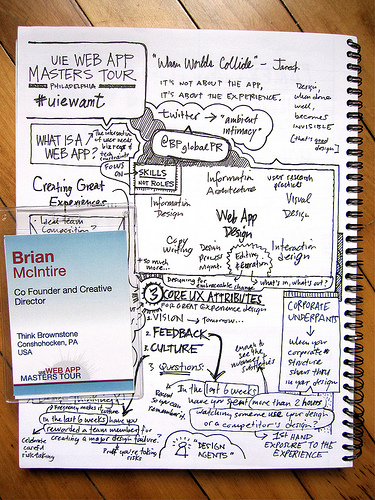 UIE WEB APP
MASTERS TOUR
PHILADELPHIA
#uiewant
"When Worlds Collide" - Jared
IT'S NOT ABOUT THE APP,
IT'S ABOUT THE EXPERIENCE.
Design,
when done
well,
becomes
INVISIBLE
[that's good
design]
twitter → "ambient
intimacy"
@BPglobalPR
WHAT IS A
WEB APP?
FOCUS
ON
SKILLS
NOT ROLES
Creating Great
Experiences
Information
Architecture
user research
practices
Information
Design
Visual
Design
Web App
Design
Copy
Writing
Design
process
Mgmt.
Editing
& curation
Interaction
design
+ so much
more...
what's in, what's out?
• Ideal team
Composition?
Brian
McIntire
Co Founder and Creative
Director
Think Brownstone
Conshohocken, PA
USA
WEB APP
MASTERS TOUR
3 CORE UX ATTRIBUTES
FOR experience design
1. VISION → tomorrow...
2. FEEDBACK
3. CULTURE
CORPORATE
UNDERPANTS
when your
corporate
structure
shows thru
in your design
3 Questions:
enough to
see the
subtleties
In the last 6 weeks
have you spent more than 2 hours
watching someone use your design
or a competitor's design?
1ST HAND
EXPOSURE TO THE
EXPERIENCE
In the last 6 weeks have you
rewarded a team member for
creating a major design failure?
celebrate
careful
risk-taking
Proof you're taking
risks
"DESIGN
AGENTS"